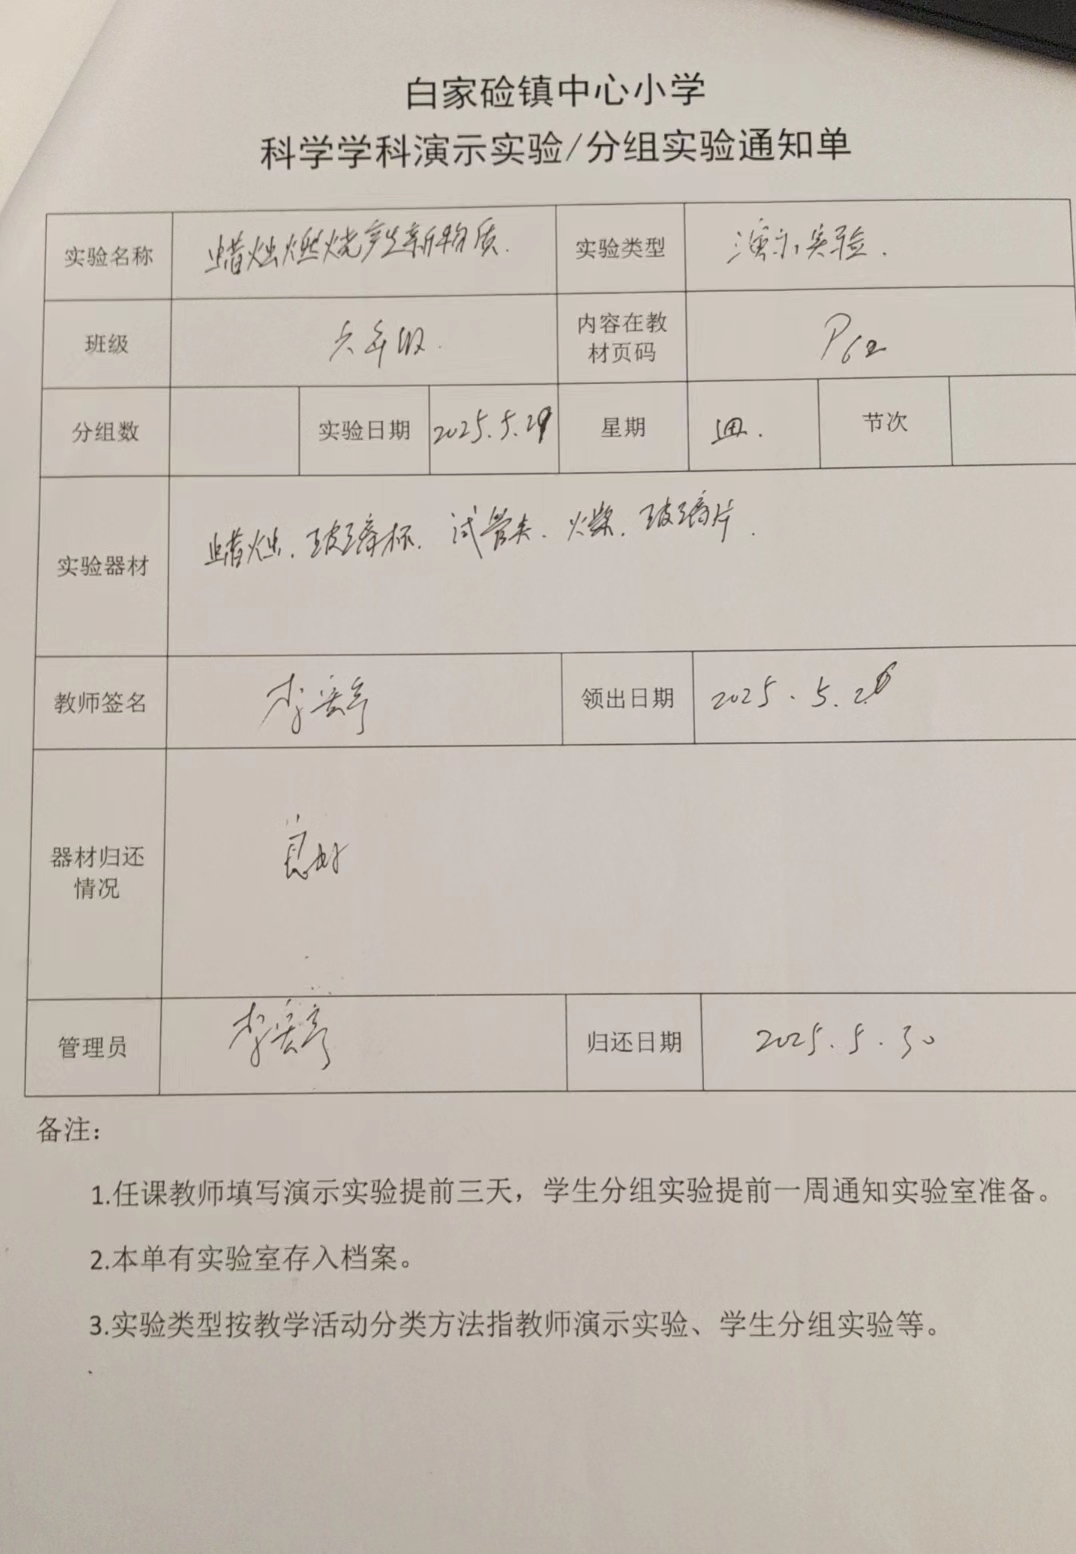 白家硷镇中心小学
科学学科演示实验/分组实验通知单
实验名称 蜡烛燃烧产生新物质. 实验类型 演示实验.
班级 六年级. 内容在教材页码 P62
分组数 实验日期 2025.5.29 星期 四. 节次
实验器材 蜡烛. 玻璃杯. 试管夹. 火柴. 玻璃片.
教师签名 李 领出日期 2025.5.26
器材归还情况 良好
管理员 李 归还日期 2025.5.30
备注：
1.任课教师填写演示实验提前三天，学生分组实验提前一周通知实验室准备。
2.本单有实验室存入档案。
3.实验类型按教学活动分类方法指教师演示实验、学生分组实验等。